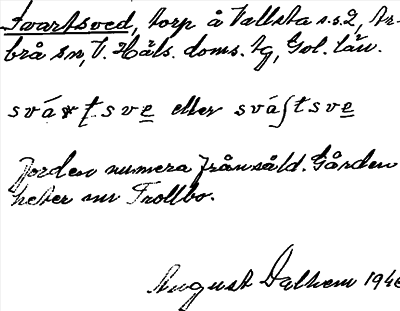 Svartsved, torp å Vallsta s.s.2, Ar-
brå sn, V. Häls. doms. tg, Gvl. län.
svártsve eller sváʃtsve
Jorden numera frånsåld. Gården
heter nu Trollbo.
August Dalhem 1946